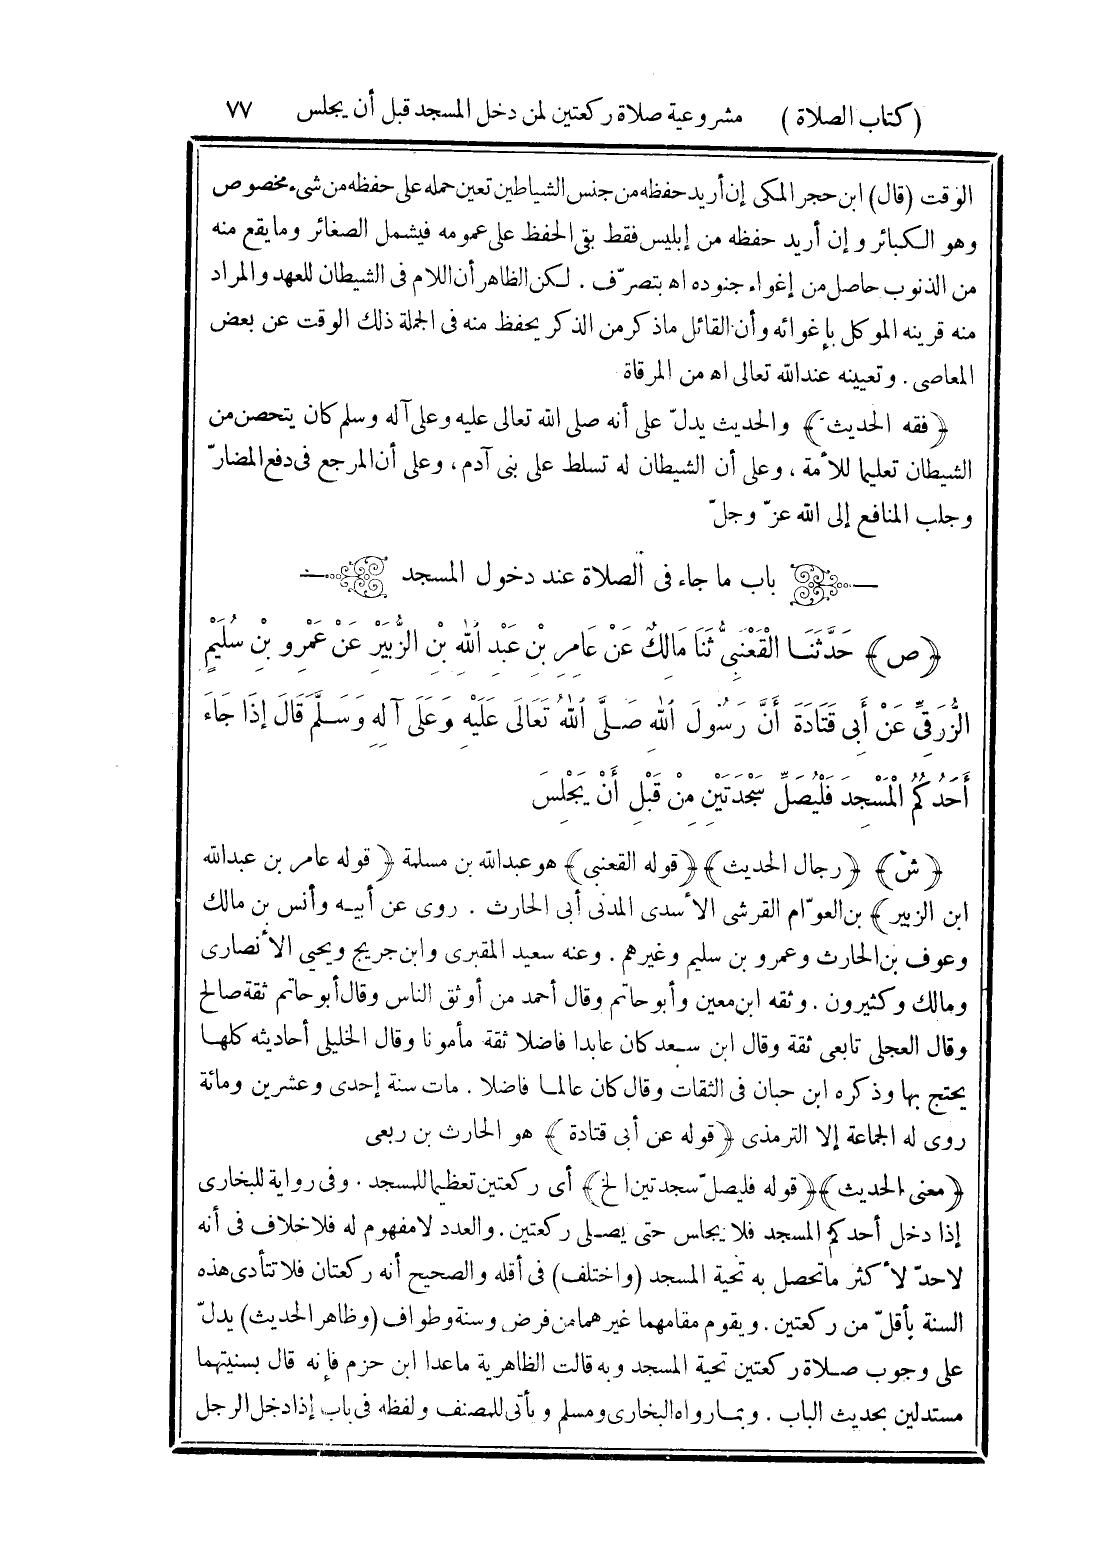 ( كتاب الصلاة ) مشروعية صلاة ركعتين لمن دخل المسجد قبل أن يجلس ٧٧
الوقت (قال) ابن حجر المكى إن أريد حفظه من جنس الشياطين تعين حمله على حفظه من شىء مخصوص
وهو الكبائر وإن أريد حفظه من إبليس فقط بقى الحفظ على عمومه فيشمل الصغائر وما يقع منه
من الذنوب حاصل من إغواء جنوده اه بتصرّف . لكن الظاهر أن اللام فى الشيطان للعهد والمراد
منه قرينه الموكل بإغوائه وأن القائل ماذكر من الذكر يحفظ منه فى الجملة ذلك الوقت عن بعض
المعاصى . وتعيينه عند الله تعالى اه من المرقاة
﴿فقه الحديث﴾ والحديث يدلّ على أنه صلى الله تعالى عليه وعلى آله وسلم كان يتحصن من
الشيطان تعليما للأمة ، وعلى أن الشيطان له تسلط على بنى آدم ، وعلى أن المرجع فى دفع المضارّ
وجلب المنافع إلى الله عزّ وجلّ
باب ما جاء فى الصلاة عند دخول المسجد
﴿ص﴾ حَدَّثَنَا الْقَعْنَبِىُّ ثَنَا مَالِكٌ عَنْ عَامِرِ بْنِ عَبْدِ اللهِ بْنِ الزُّبَيْرِ عَنْ عَمْرِو بْنِ سُلَيْمٍ
الزُّرَقِىِّ عَنْ أَبِى قَتَادَةَ أَنَّ رَسُولَ اللهِ صَلَّى اللهُ تَعَالَى عَلَيْهِ وَعَلَى آلِهِ وَسَلَّمَ قَالَ إِذَا جَاءَ
أَحَدُكُمُ الْمَسْجِدَ فَلْيُصَلِّ سَجْدَتَيْنِ مِنْ قَبْلِ أَنْ يَجْلِسَ
﴿ش﴾ ﴿رجال الحديث﴾ ﴿قوله القعنبى﴾ هو عبد الله بن مسلمة ﴿قوله عامر بن عبد الله
ابن الزبير﴾ بن العوّام القرشى الأسدى المدنى أبى الحارث . روى عن أبيه وأنس بن مالك
وعوف بن الحارث وعمرو بن سليم وغيرهم . وعنه سعيد المقبرى وابن جريج ويحيى الأنصارى
ومالك وكثيرون . وثقه ابن معين وأبو حاتم وقال أحمد من أوثق الناس وقال أبو حاتم ثقة صالح
وقال العجلى تابعى ثقة وقال ابن سعد كان عابدا فاضلا ثقة مأمونا وقال الخليلى أحاديثه كلها
يحتج بها وذكره ابن حبان فى الثقات وقال كان عالما فاضلا . مات سنة إحدى وعشرين ومائة
روى له الجماعة إلا الترمذى ﴿قوله عن أبى قتادة﴾ هو الحارث بن ربعى
﴿معنى الحديث﴾ ﴿قوله فليصلّ سجدتين الخ﴾ أى ركعتين تعظيما للمسجد . وفى رواية للبخارى
إذا دخل أحدكم المسجد فلا يجلس حتى يصلى ركعتين . والعدد لامفهوم له فلاخلاف فى أنه
لاحدّ لأكثر ماتحصل به تحية المسجد (واختلف) فى أقله والصحيح أنه ركعتان فلا تتأدى هذه
السنة بأقلّ من ركعتين . ويقوم مقامهما غيرهما من فرض وسنة وطواف (وظاهر الحديث) يدلّ
على وجوب صلاة ركعتين تحية المسجد وبه قالت الظاهرية ماعدا ابن حزم فإنه قال بسنيتهما
مستدلين بحديث الباب . وبما رواه البخارى ومسلم ويأتى للمصنف ولفظه فى باب إذا دخل الرجل